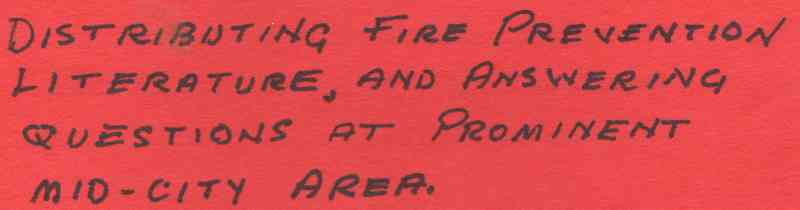 DISTRIBUTING FIRE PREVENTION
LITERATURE, AND ANSWERING
QUESTIONS AT PROMINENT
MID-CITY AREA.